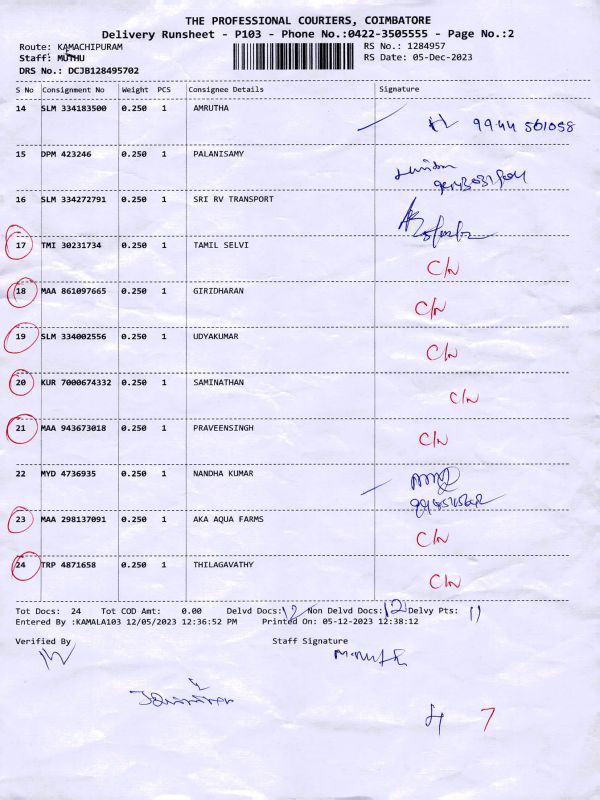 THE PROFESSIONAL COURIERS, COIMBATORE
Delivery Runsheet - P103 - Phone No.:0422-3505555 - Page No.:2
Route: KAMACHIPURAM RS No.: 1284957
Staff: MUTHU RS Date: 05-Dec-2023
DRS No.: DCJB128495702
S No Consignment No Weight PCS Consignee Details Signature
14 SLM 334183500 0.250 1 AMRUTHA
9944 561058
15 DPM 423246 0.250 1 PALANISAMY
16 SLM 334272791 0.250 1 SRI RV TRANSPORT
17 TMI 30231734 0.250 1 TAMIL SELVI
C/N
18 MAA 861097665 0.250 1 GIRIDHARAN
C/N
19 SLM 334002556 0.250 1 UDYAKUMAR
C/N
20 KUR 7000674332 0.250 1 SAMINATHAN
C/N
21 MAA 943673018 0.250 1 PRAVEENSINGH
C/N
22 MYD 4736935 0.250 1 NANDHA KUMAR
23 MAA 298137091 0.250 1 AKA AQUA FARMS
C/N
24 TRP 4871658 0.250 1 THILAGAVATHY
C/N
Tot Docs: 24 Tot COD Amt: 0.00 Delvd Docs: 12 Non Delvd Docs: 12 Delvy Pts: 11
Entered By :KAMALA103 12/05/2023 12:36:52 PM Printed On: 05-12-2023 12:38:12
Verified By Staff Signature
7